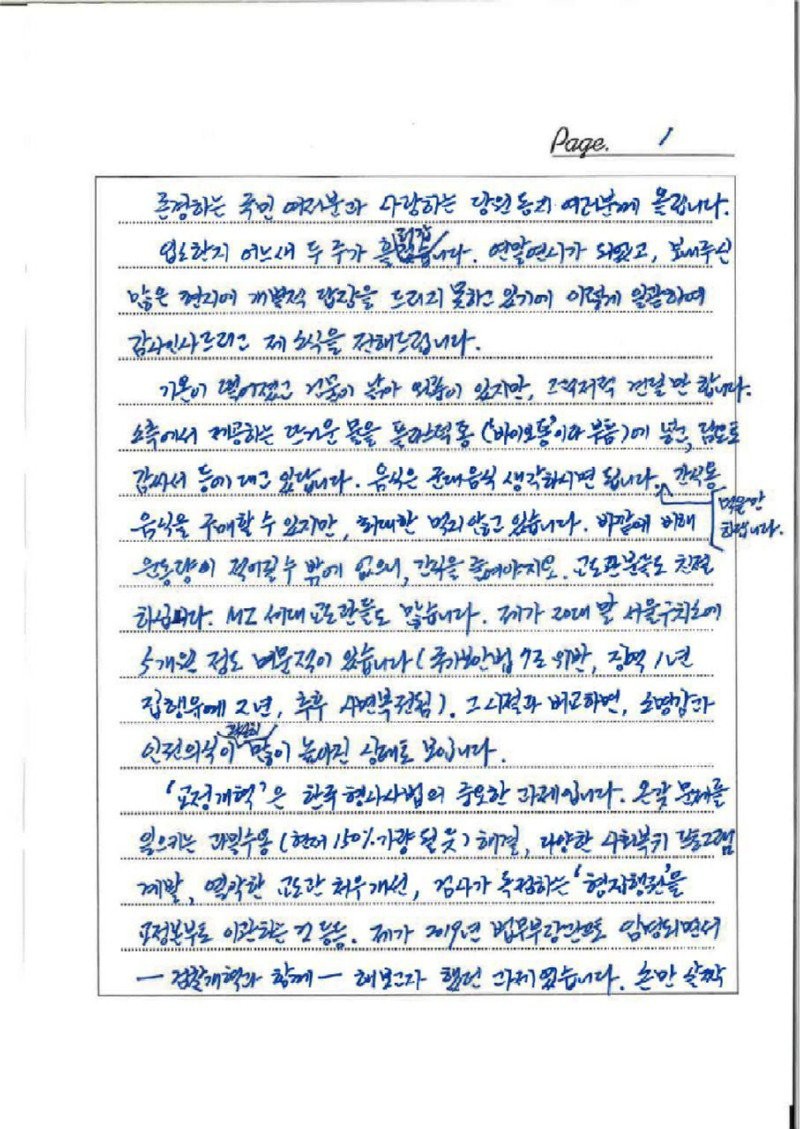 Page. 1
존경하는 국민 여러분과 사랑하는 당원동지 여러분께 올립니다.
입소한지 어느새 두 주가 흘렀습니다. 연말연시가 되었고, 보내주신
많은 편지에 개별적 답장을 드리지 못하고 있기에 이렇게 일괄하여
감사인사드리고 제 소식을 전해드립니다.
기온이 떨어졌고 건물이 낡아 외풍이 있지만, 그럭저럭 견딜 만 합니다.
소측에서 제공하는 뜨거운 물을 플라스틱 통('바이오통'이라 부름)에 넣고, 담요로
감싸서 등에 대고 있답니다. 음식은 군대음식 생각하시면 됩니다. 간식용
먹을만
합니다.
음식을 구매할 수 있지만, 최대한 먹지 않고 있습니다. 바깥에 비해
운동량이 적어질 수 밖에 없으니, 간식을 줄여야지요. 교도관분들도 친절
하십니다. MZ 세대 교도관들도 많습니다. 제가 20대 말 서울구치소에
5개월 정도 머문적이 있습니다(국가보안법 7조 위반, 징역 1년
집행유예 2년, 추후 사면복권됨). 그 시절과 비교하면, 소명감과
인권의식이 많이 높아진 상태로 보입니다.
'교정개혁'은 한국 형사사법의 중요한 과제입니다. 온갖 문제를
일으키는 과밀수용(현재 150% 가량 될 듯) 해결, 다양한 사회복귀 프로그램
계발, 열악한 교도관 처우개선, 검사가 독점하는 '형집행권'을
교정본부로 이관하는 것 등등. 제가 2019년 법무부장관으로 임명되면서
— 검찰개혁과 함께 — 해보고자 했던 과제였습니다. 손만 살짝